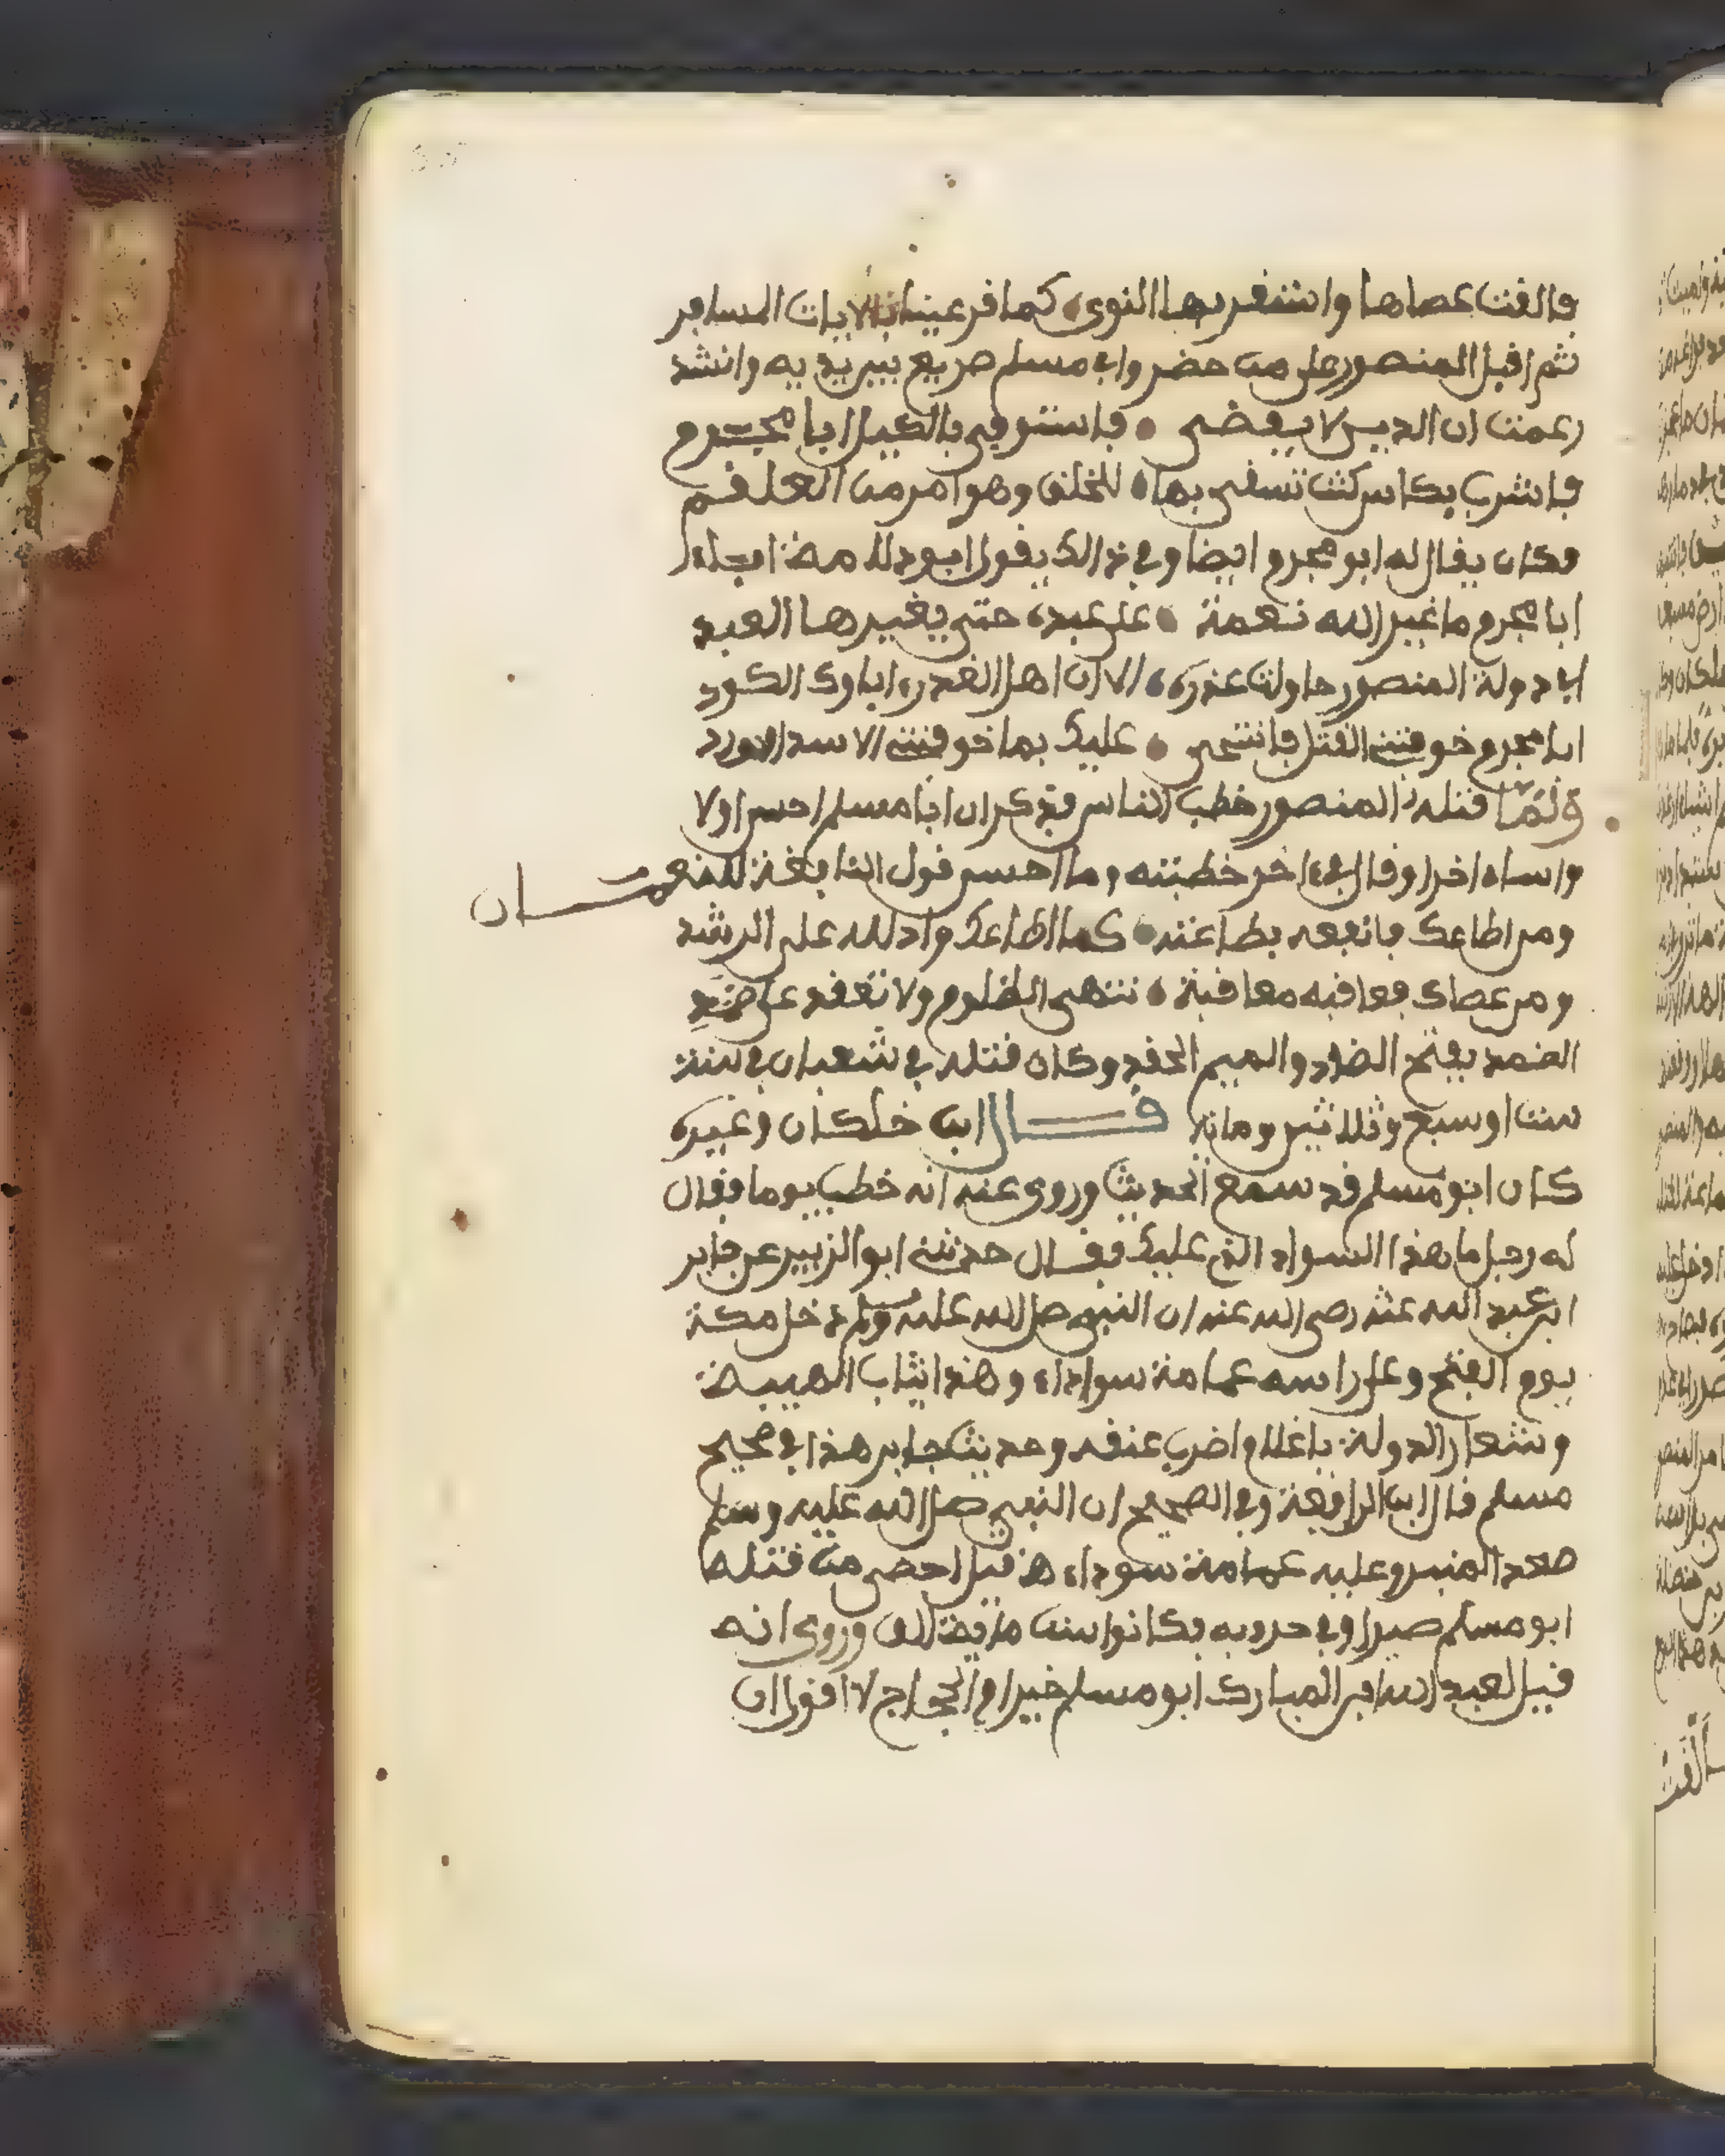 فالقت عصاها واستقر بها النوى كما قر عينا بالاياب المسافر
ثم اقبل المنصور على من حضر وابو مسلم صريع بين يديه وانشد
زعمت ان الدين لا يقضى فاستوفي بالكيل ابا مجرم
فاشرب بكاس كنت تسقي بها للخلق وهو امر من العلقم
وكان يقال له ابو مجرم ايضا وفي ذالك يقول ابو دلامة
ابا مجرم ما غير الله نعمة على عبده حتى يغيرها العبد
افي دولة المنصور حاولت غدره الا ان اهل الغدر اباوك الكرد
ابا مجرم خوفتني القتل فانتحى عليك بما خوفتني الاسد الورد
ولما قتله المنصور خطب الناس فذكر ان ابا مسلم احسن اولا
واساء اخرا وقال في اخر خطبته وما احسن قول النابغة للنعمان
ومن اطاعك فانفعه بطاعته كما اطاعك وادلله على الرشد
ومن عصاك فعاقبه معاقبة تنهى الظلوم ولا تقعد على ضمد
الضمد بفتح الضاد والميم الحقد وكان قتله في شعبان في سنة
ست او سبع وثلاثين ومائة قال ابن خلكان وغيره
كان ابو مسلم قد سمع الحديث وروى عنه انه خطب يوما فقال
له رجل ما هذا السواد الذي عليك فقال حدثني ابو الزبير عن جابر
ابن عبد الله عنه رضي الله عنه ان النبي صلى الله عليه وسلم دخل مكة
يوم الفتح وعلى راسه عمامة سوداء وهذا ثياب الهيبة
وشعار الدولة يا غلام اضرب عنقه وحديث جابر هذا في صحيح
مسلم قال ابن الرافعة وفي الصحيح ان النبي صلى الله عليه وسلم
صعد المنبر وعليه عمامة سوداء قيل احصي من قتله
ابو مسلم صبرا وفي حروبه فكانوا ست ماية الف وروى انه
قيل لعبد الله ابن المبارك ابو مسلم خير او الحجاج لا اقول ان